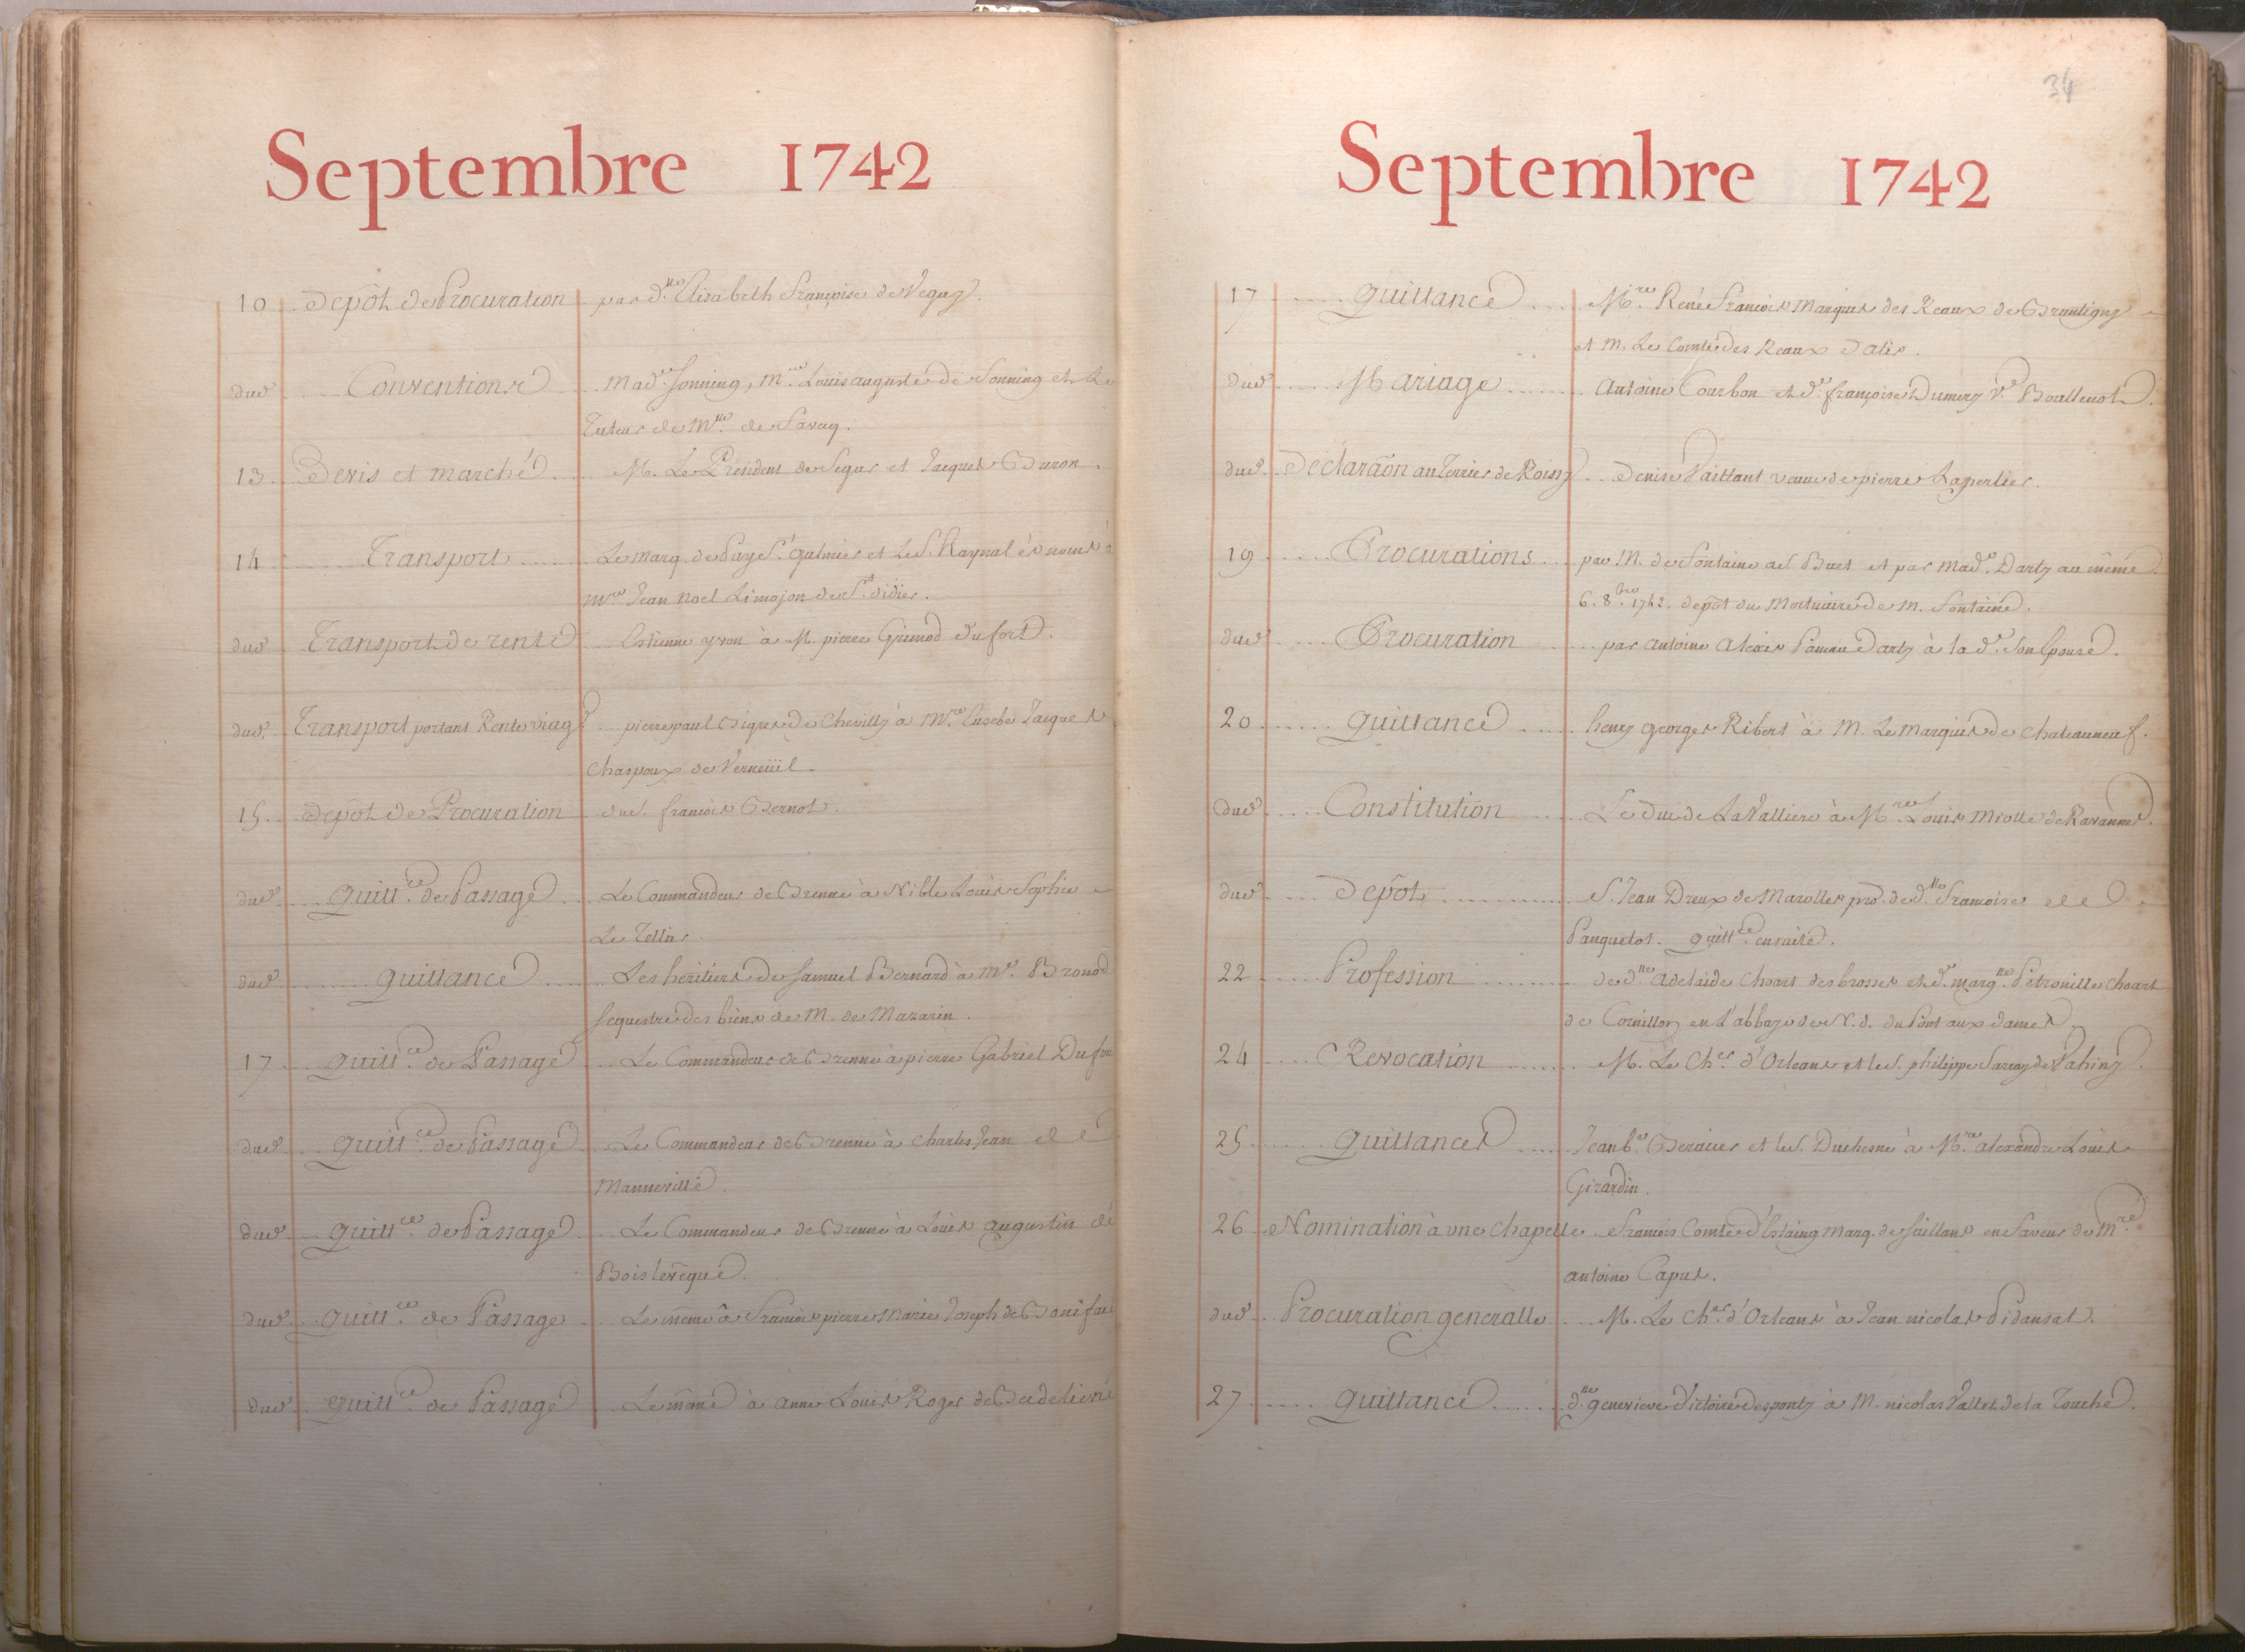 Septembre 1742
10 Depôt de Procuration par d.lle Elisabeth Françoise de Vegny.
dud. Conventions Mad.e Sonning, M.re Louis auguste de Sonning et Le
Tuteur de M.lle de Savary.
13 Devis et marché M. Le Président de Segur et Jacques Buron.
14 Transport Le marq. de Puy St. galmier et Le S. Raynal és noms à
M.re Jean Noel Limojon de St. didier.
dud. Transport de rente Estienne yvon à M. pierre Grimod Dufort.
dud. Transport portant Rente viag.e pierre paul de Chevilly à M.re Eusebe Jacques
Chaspoux de Verneüil.
15 depôt de Procuration du S. françois Bernot.
dud. quitt.ce de Passage Le Commandeur de Brenne à Louis Sophie
Le Tellier.
dud. quittance Les heritiers de Samuel Bernard à M.e Bronod
sequestre des biens de M. de Mazarin.
17 quitt.ce de Passage Le Commandeur de Brenne à pierre Gabriel Dufou
dud. quitt.ce de Passage Le Commandeur de Brenne à Charles Jean de
Manneville.
dud. quitt.ce de Passage Le Commandeur de Brenne à Louis augustin de
Boislevêque.
dud. quitt.ce de Passage Le même à François pierre Marie Joseph de Bonifac
dud. quitt.ce de Passage Le même à anne Louis Roger de
34
Septembre 1742
17 quittance M.re René François Marquis des Reaux de Brantigny
et M. Le Comte des Reaux
dud. Mariage Antoine Courbon et d.e françoise Dumery v.e
dud. Déclarãon au Terrier de Roissy Denise Vaillant veuve de pierre Laperlier.
19 Procurations par M. de Fontaine au S. Buet et par mad.e Darty au même.
6. 8.bre 1742. depôt du Mortuaire de M. Fontaine.
dud. Procuration par antoine Alexis Panneau Darty à la d.e son Epouse.
20 quittance henry georges Ribert à M. Le Marquis de Chateauneuf.
dud. Constitution Le Duc de La Valliere à M.re Louis Miotte de Ravannes.
dud. depôt S. Jean Dreux de Marolles pr̃. de d.lle Françoise
Pauquelot. quitt.ce ensuite.
22 Profession de d.lle Adelaide Choart des brosses et d.e marg.te Petronille Choart
de en L'abbaye de N. d. du Pont aux dames.
24 Revocation M. Le Ch.er d'Orleans et le S. philippe Sarray de Vahiny.
25 quittances Jean b.e et le S. Duchesne à M.re alexandre Louis
Girardin.
26 Nomination à une chapelle François Comte d'Estaing marq. de Saillans en faveur de M.re
antoine Caput.
dud. Procuration generalle M. Le Ch.er d'Orleans à Jean nicolas Pidansat.
27 quittance d.lle genevieve Victoire Desponty à M. nicolas Vallet de la Touche.